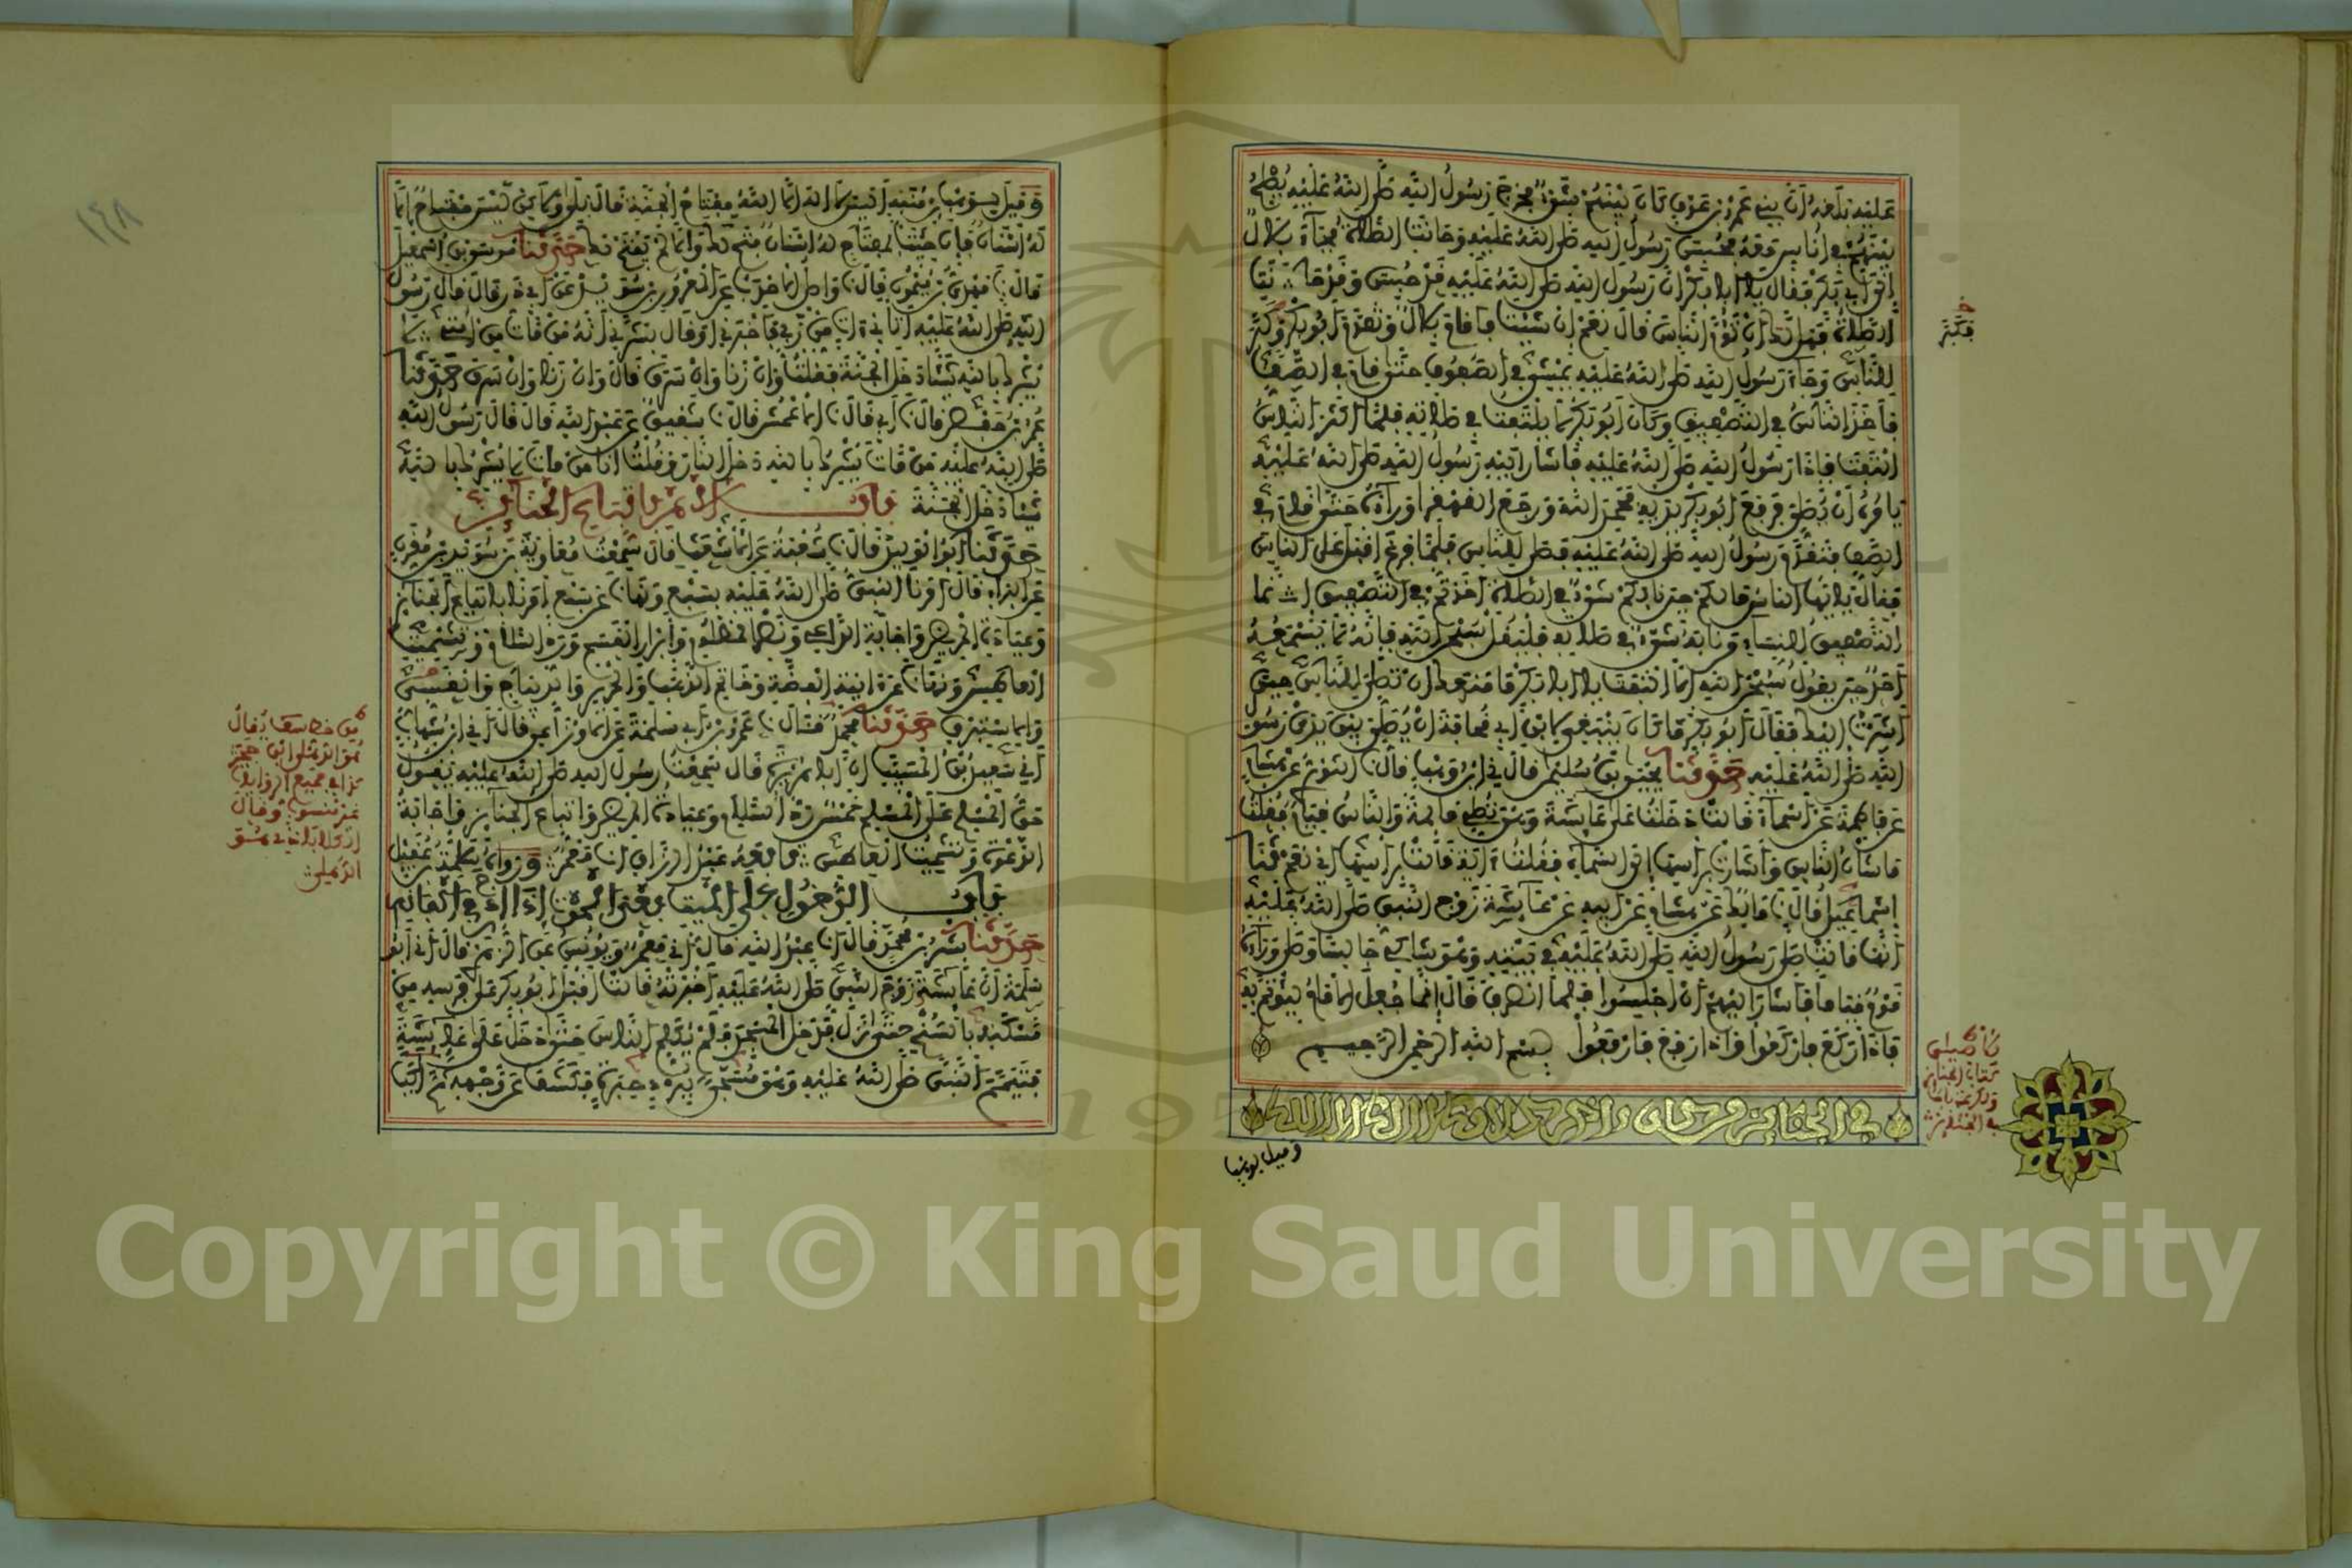 عليه بلغه أن بني عمرو بن عوف كان بينهم شيء فخرج رسول الله صلى الله عليه يصلح
بينهم في أناس معه فحبس رسول الله صلى الله عليه وحانت الصلاة فجاء بلال
إلى أبي بكر فقال يا أبا بكر إن رسول الله صلى الله عليه قد حبس وقد حانت
الصلاة فهل لك أن تؤم الناس قال نعم إن شئت فأقام بلال وتقدم أبو بكر وكبر
للناس وجاء رسول الله صلى الله عليه يمشي في الصفوف حتى قام في الصف
فأخذ الناس في التصفيق وكان أبو بكر لا يلتفت في صلاته فلما أكثر الناس
التفت فإذا رسول الله صلى الله عليه فأشار إليه رسول الله صلى الله عليه
يأمره أن يصلي فرفع أبو بكر يديه فحمد الله ورجع القهقرا وراءه حتى قام في
الصف فتقدم رسول الله صلى الله عليه فصلى للناس فلما فرغ أقبل على الناس
فقال يا أيها الناس ما لكم حين نابكم شيء في الصلاة أخذتم في التصفيق إنما
التصفيق للنساء من نابه شيء في صلاته فليقل سبحن الله فإنه لا يسمعه
أحد حين يقول سبحن الله إلا التفت يا أبا بكر ما منعك أن تصلي للناس حين
أشرت إليك فقال أبو بكر ما كان ينبغي لابن أبي قحافة أن يصلي بين يدي رسول
الله صلى الله عليه حدثنا يحيى بن سليمن قال ني ابن وهب قال نا الثوري عن هشام
عن فاطمة عن أسماء قالت دخلت على عايشة وهي تصلي قايمة والناس قيام فقلت
ما شأن الناس فأشارت برأسها إلى السماء فقلت آية فأشارت برأسها أي نعم حدثنا
إسماعيل قال نا مالك عن هشام عن أبيه عن عايشة زوج النبي صلى الله عليه
أنها قالت صلى رسول الله صلى الله عليه في بيته وهو شاك جالسا وصلى وراءه
قوم قياما فأشار إليهم أن اجلسوا فلما انصرف قال إنما جعل الإمام ليؤتم به
فإذا ركع فاركعوا وإذا رفع فارفعوا بسم الله الرحمن الرحيم
في الجنايز ومن كان ءاخر كلامه لا إله إلا الله
وقيل لوهب
فكبر
كتاب الجنايز
وقيل لوهب بن منبه أليس لا إله إلا الله مفتاح الجنة قال بلى ولكن ليس مفتاح إلا
له أسنان فإن جئت بمفتاح له أسنان فتح لك وإلا لم يفتح لك حدثنا موسى بن إسمعيل
قال نا مهدي بن ميمون قال نا واصل الأحدب عن المعرور بن سويد عن أبي ذر قال قال رسول
الله صلى الله عليه أتاني آت من ربي فأخبرني أو قال بشرني أنه من مات من أمتي لا
يشرك بالله شيئا دخل الجنة فقلت وإن زنا وإن سرق قال وإن زنا وإن سرق حدثنا
عمر بن حفص قال نا أبي قال نا الأعمش قال نا شقيق عن عبد الله قال قال رسول الله
صلى الله عليه من مات يشرك بالله دخل النار وقلت أنا من مات لا يشرك بالله
شيئا دخل الجنة باب الأمر باتباع الجنايز
حدثنا أبو الوليد قال نا شعبة عن الأشعث قال سمعت معاوية بن سويد بن مقرن
عن البراء قال أمرنا النبي صلى الله عليه بسبع ونهانا عن سبع أمرنا باتباع الجنايز
وعيادة المريض وإجابة الداعي ونصر المظلوم وإبرار القسم ورد السلام وتشميت
العاطس ونهانا عن آنية الفضة وخاتم الذهب والحرير والديباج والقسي
والإستبرق حدثنا محمد قال نا عمرو بن أبي سلمة عن الأوزاعي قال ني ابن شهاب
ني سعيد بن المسيب أن أبا هريرة قال سمعت رسول الله صلى الله عليه يقول
حق المسلم على المسلم خمس رد السلام وعيادة المريض واتباع الجنايز وإجابة
الدعوة وتشميت العاطس تابعه عبد الرزاق أنا معمر ورواه سلامة عن عقيل
باب الدخول على الميت بعد الموت إذا أدرج في أكفانه
حدثنا بشر بن محمد قال أنا عبد الله قال ني معمر ويونس عن الزهري قال ني أبو
سلمة أن عايشة زوج النبي صلى الله عليه أخبرته قالت أقبل أبو بكر على فرسه من
مسكنه بالسنح حتى نزل فدخل المسجد فلم يكلم الناس حتى دخل على عايشة
فتيمم النبي صلى الله عليه وهو مسجى ببرد حبرة فكشف عن وجهه ثم أكب
١٤٨
Copyright © King Saud University